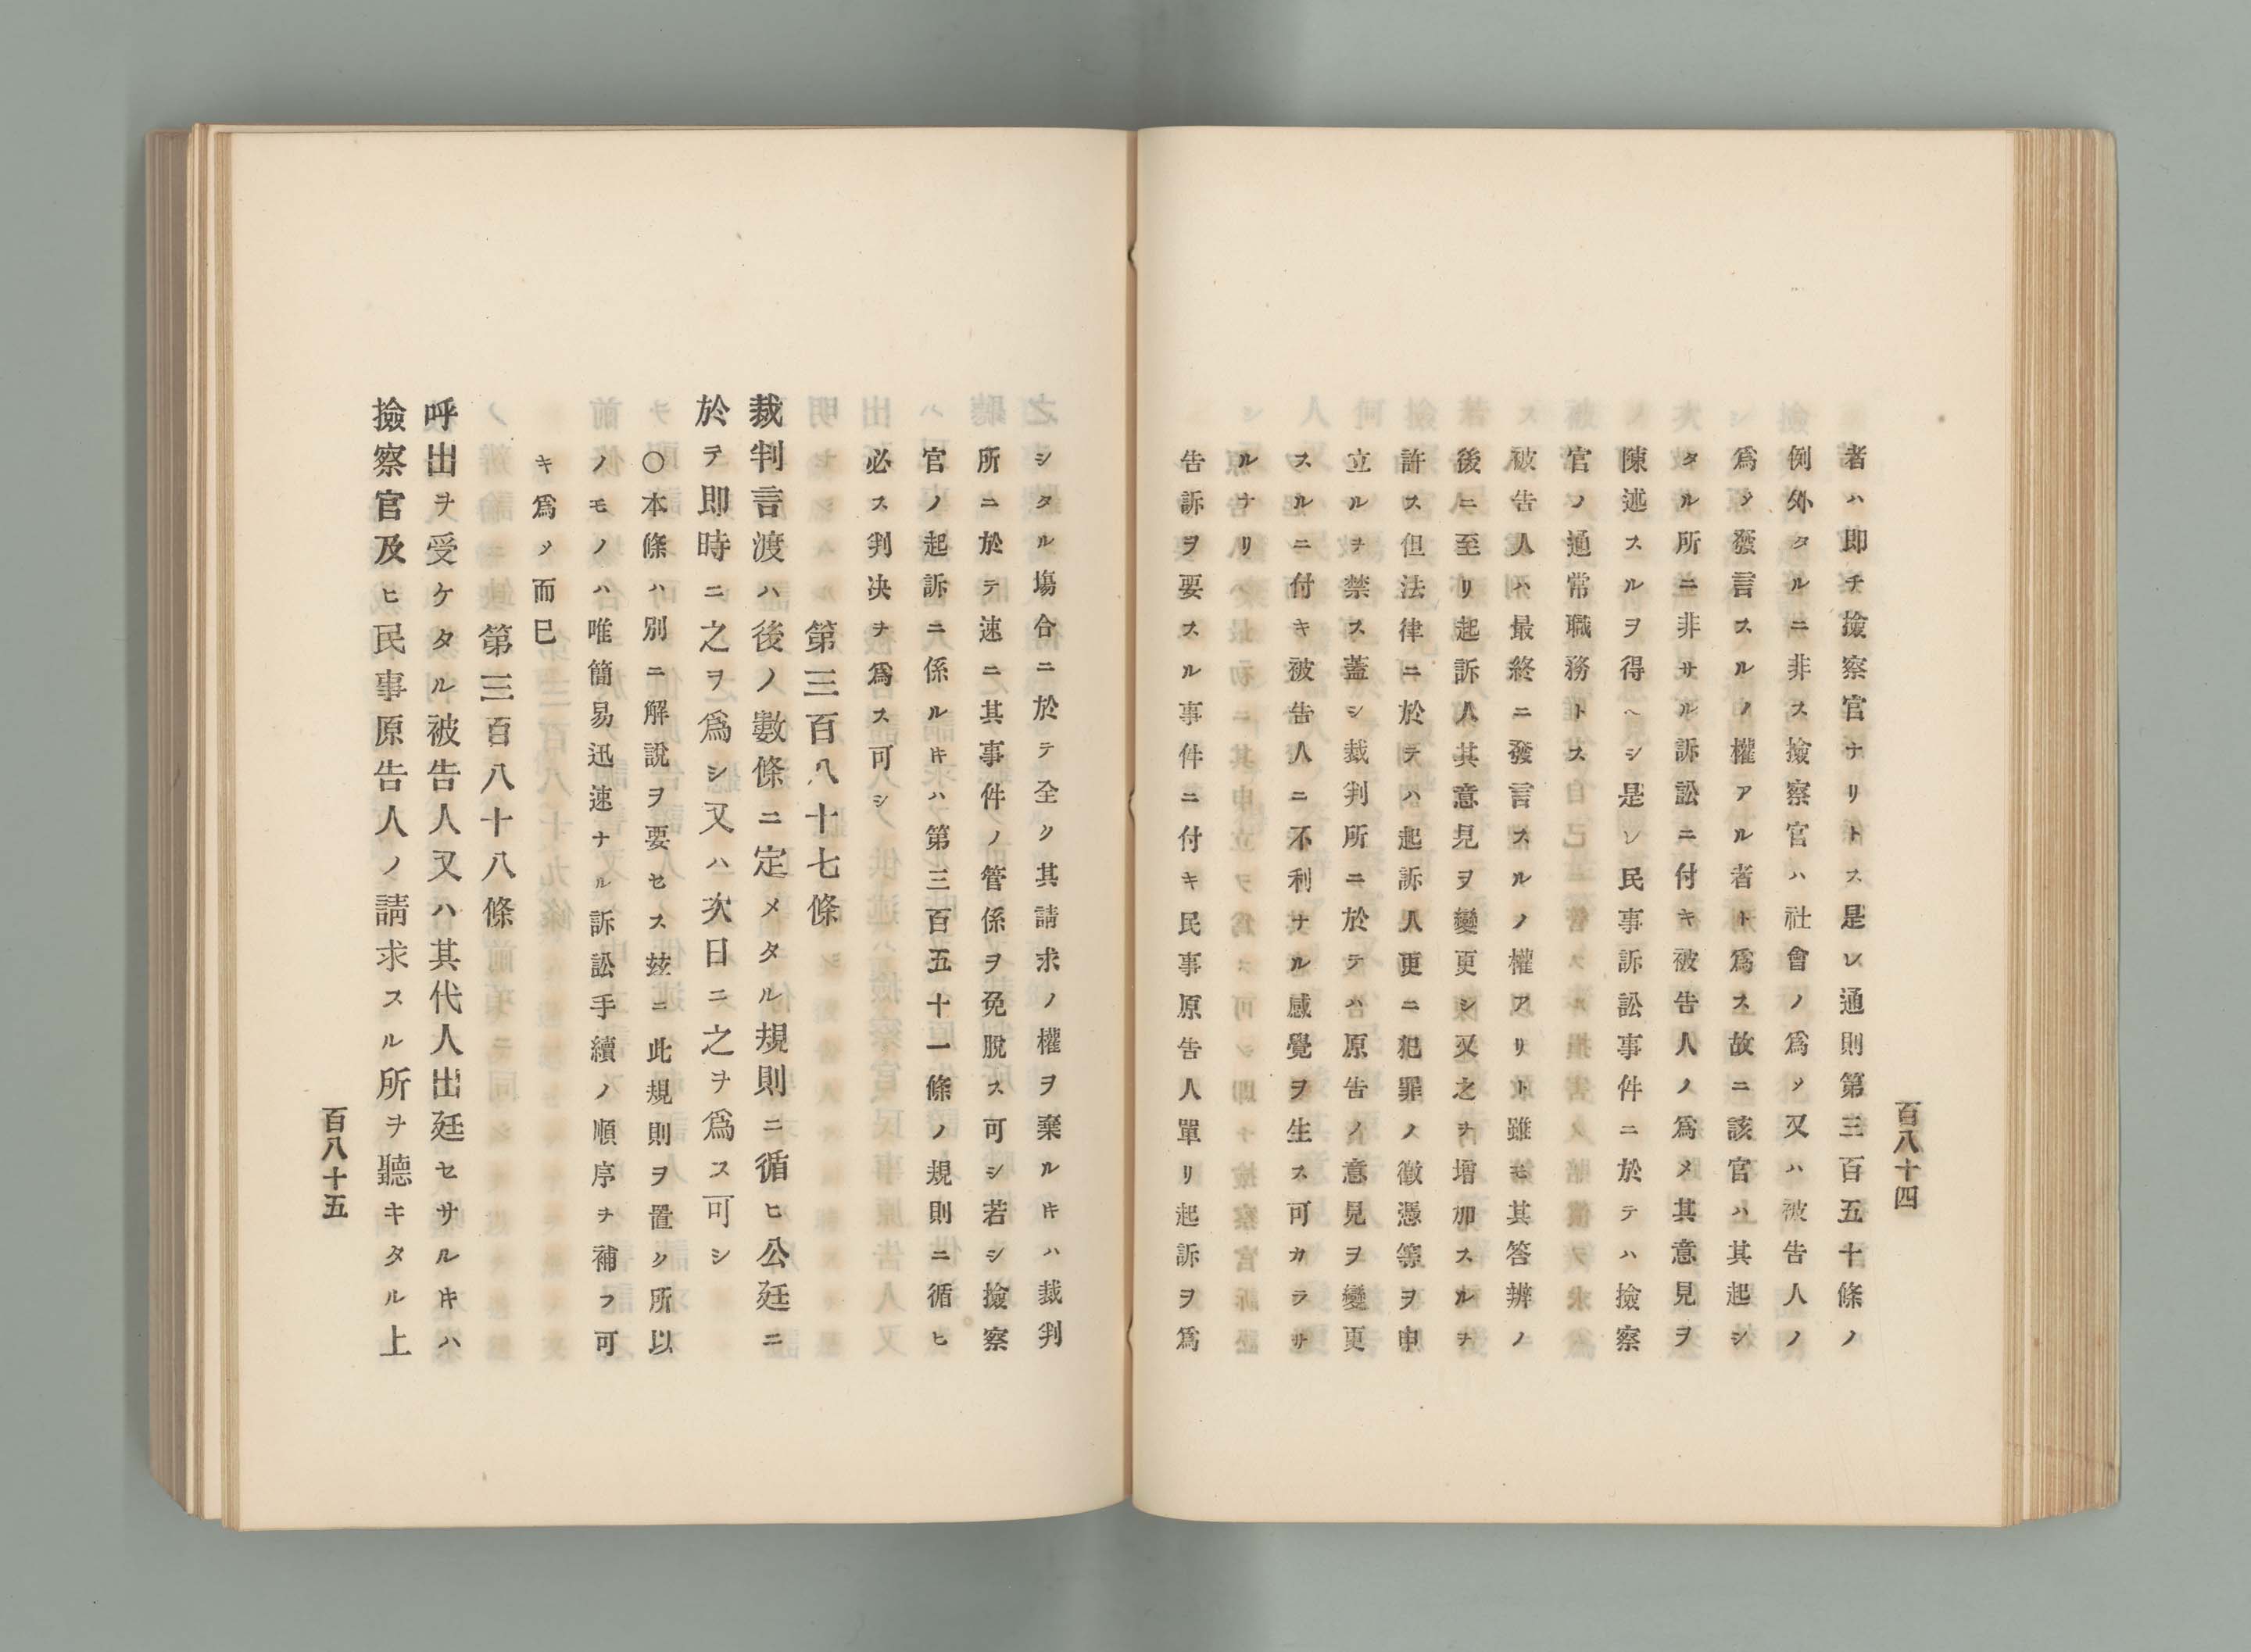 百八十四
者ハ即チ撿察官ナリトス是レ通則第三百五十條ノ
例外タルニ非ス撿察官ハ社會ノ爲メ又ハ被告人ノ
爲メ發言スルノ權アル者ト爲ス故ニ該官ハ其起シ
タル所ニ非サル訴訟ニ付キ被告人ノ爲メ其意見ヲ
陳述スルヲ得ヘシ是レ民事訴訟事件ニ於テハ撿察
官ノ通常職務トス
被告人ハ最終ニ發言スルノ權アリト雖モ其答辨ノ
後ニ至リ起訴人其意見ヲ變更シ又之ヲ增加スルヲ
許ス但法律ニ於テハ起訴人更ニ犯罪ノ徵憑等ヲ申
立ルヲ禁ス蓋シ裁判所ニ於テハ原告ノ意見ヲ變更
スルニ付キ被告人ニ不利ナル感覺ヲ生ス可カラサ
ルナリ
告訴ヲ要スル事件ニ付キ民事原告人單リ起訴ヲ爲
シタル塲合ニ於テ全ク其請求ノ權ヲ棄ルキハ裁判
所ニ於テ速ニ其事件ノ管係ヲ免脫ス可シ若シ撿察
官ノ起訴ニ係ルキハ第三百五十一條ノ規則ニ循ヒ
必ス判决ヲ爲ス可シ
第三百八十七條
裁判言渡ハ後ノ數條ニ定メタル規則ニ循ヒ公廷ニ
於テ即時ニ之ヲ爲シ又ハ次日ニ之ヲ爲ス可シ
〇本條ハ別ニ解說ヲ要セス玆ニ此規則ヲ置ク所以
ノモノハ唯簡易迅速ナル訴訟手續ノ順序ヲ補フ可
キ爲メ而巳
第三百八十八條
呼出ヲ受ケタル被告人又ハ其代人出廷セサルキハ
撿察官及ヒ民事原告人ノ請求スル所ヲ聽キタル上
百八十五